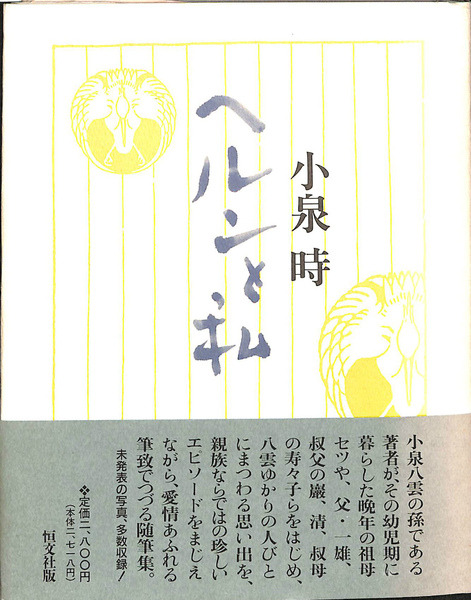 小泉 時
ヘルンと私
小泉八雲の孫である
著者が、その幼児期に
暮らした晩年の祖母
セツや、父・一雄、
叔父の巖、清、叔母
の寿々子らをはじめ、
八雲ゆかりの人びと
にまつわる思い出を、
親族ならではの珍しい
エピソードをまじえ
ながら、愛情あふれる
筆致でつづる随筆集。
未発表の写真、多数収録!
❖定価二、八〇〇円
(本体二、七一八円)
恒文社版